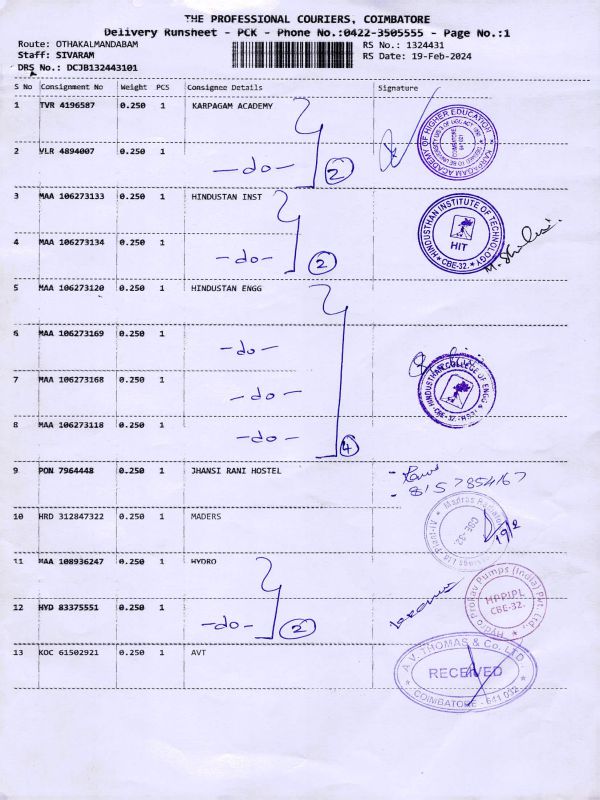 THE PROFESSIONAL COURIERS, COIMBATORE
Delivery Runsheet - PCK - Phone No.:0422-3505555 - Page No.:1
Route: OTHAKALMANDABAM RS No.: 1324431
Staff: SIVARAM RS Date: 19-Feb-2024
DRS No.: DCJB132443101
S No Consignment No Weight PCS Consignee Details Signature
1 TVR 4196587 0.250 1 KARPAGAM ACADEMY
KARPAGAM ACADEMY OF HIGHER EDUCATION
2 VLR 4894007 0.250 1 -do- 2
3 MAA 106273133 0.250 1 HINDUSTAN INST
HINDUSTHAN INSTITUTE OF TECHNOLOGY
HIT
CBE-32.
4 MAA 106273134 0.250 1 -do- 2
5 MAA 106273120 0.250 1 HINDUSTAN ENGG
6 MAA 106273169 0.250 1 -do-
7 MAA 106273168 0.250 1 -do-
HINDUSTHAN COLLEGE OF ENGG
8 MAA 106273118 0.250 1 -do- 4
9 PON 7964448 0.250 1 JHANSI RANI HOSTEL
8157854167
10 HRD 312847322 0.250 1 MADERS
CBE-32
19/2
11 MAA 108936247 0.250 1 HYDRO
Hydro Prokav Pumps (India) Pvt. Ltd.
HPPIPL
CBE-32.
12 HYD 83375551 0.250 1 -do- 2
13 KOC 61502921 0.250 1 AVT
A.V. THOMAS & Co. LTD.
RECEIVED
COIMBATORE - 641 032